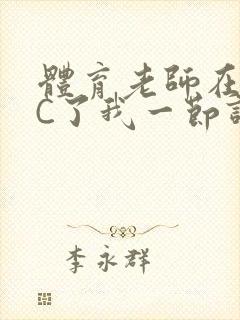 體育老師在
C了我一節
李永群